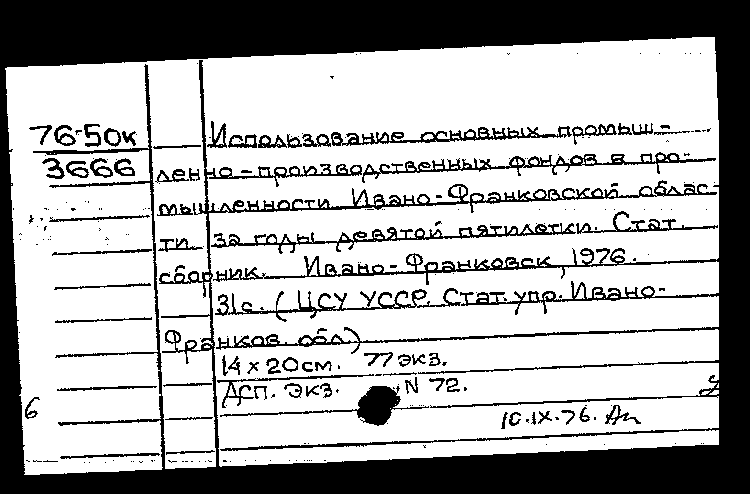 76-50к
3666
Использование основных промыш-
ленно-производственных фондов в про-
мышленности Ивано-Франковской облас-
ти за годы девятой пятилетки. Стат.
сборник. Ивано-Франковск, 1976.
31с. (ЦСУ УССР. Стат. упр. Ивано-
Франков. обл.)
14 x 20см. 77 экз.
Дсп. Экз. N 72.
6
10.IX.76.